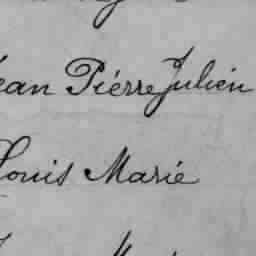 Jean Pierre Julien
Louis Marie